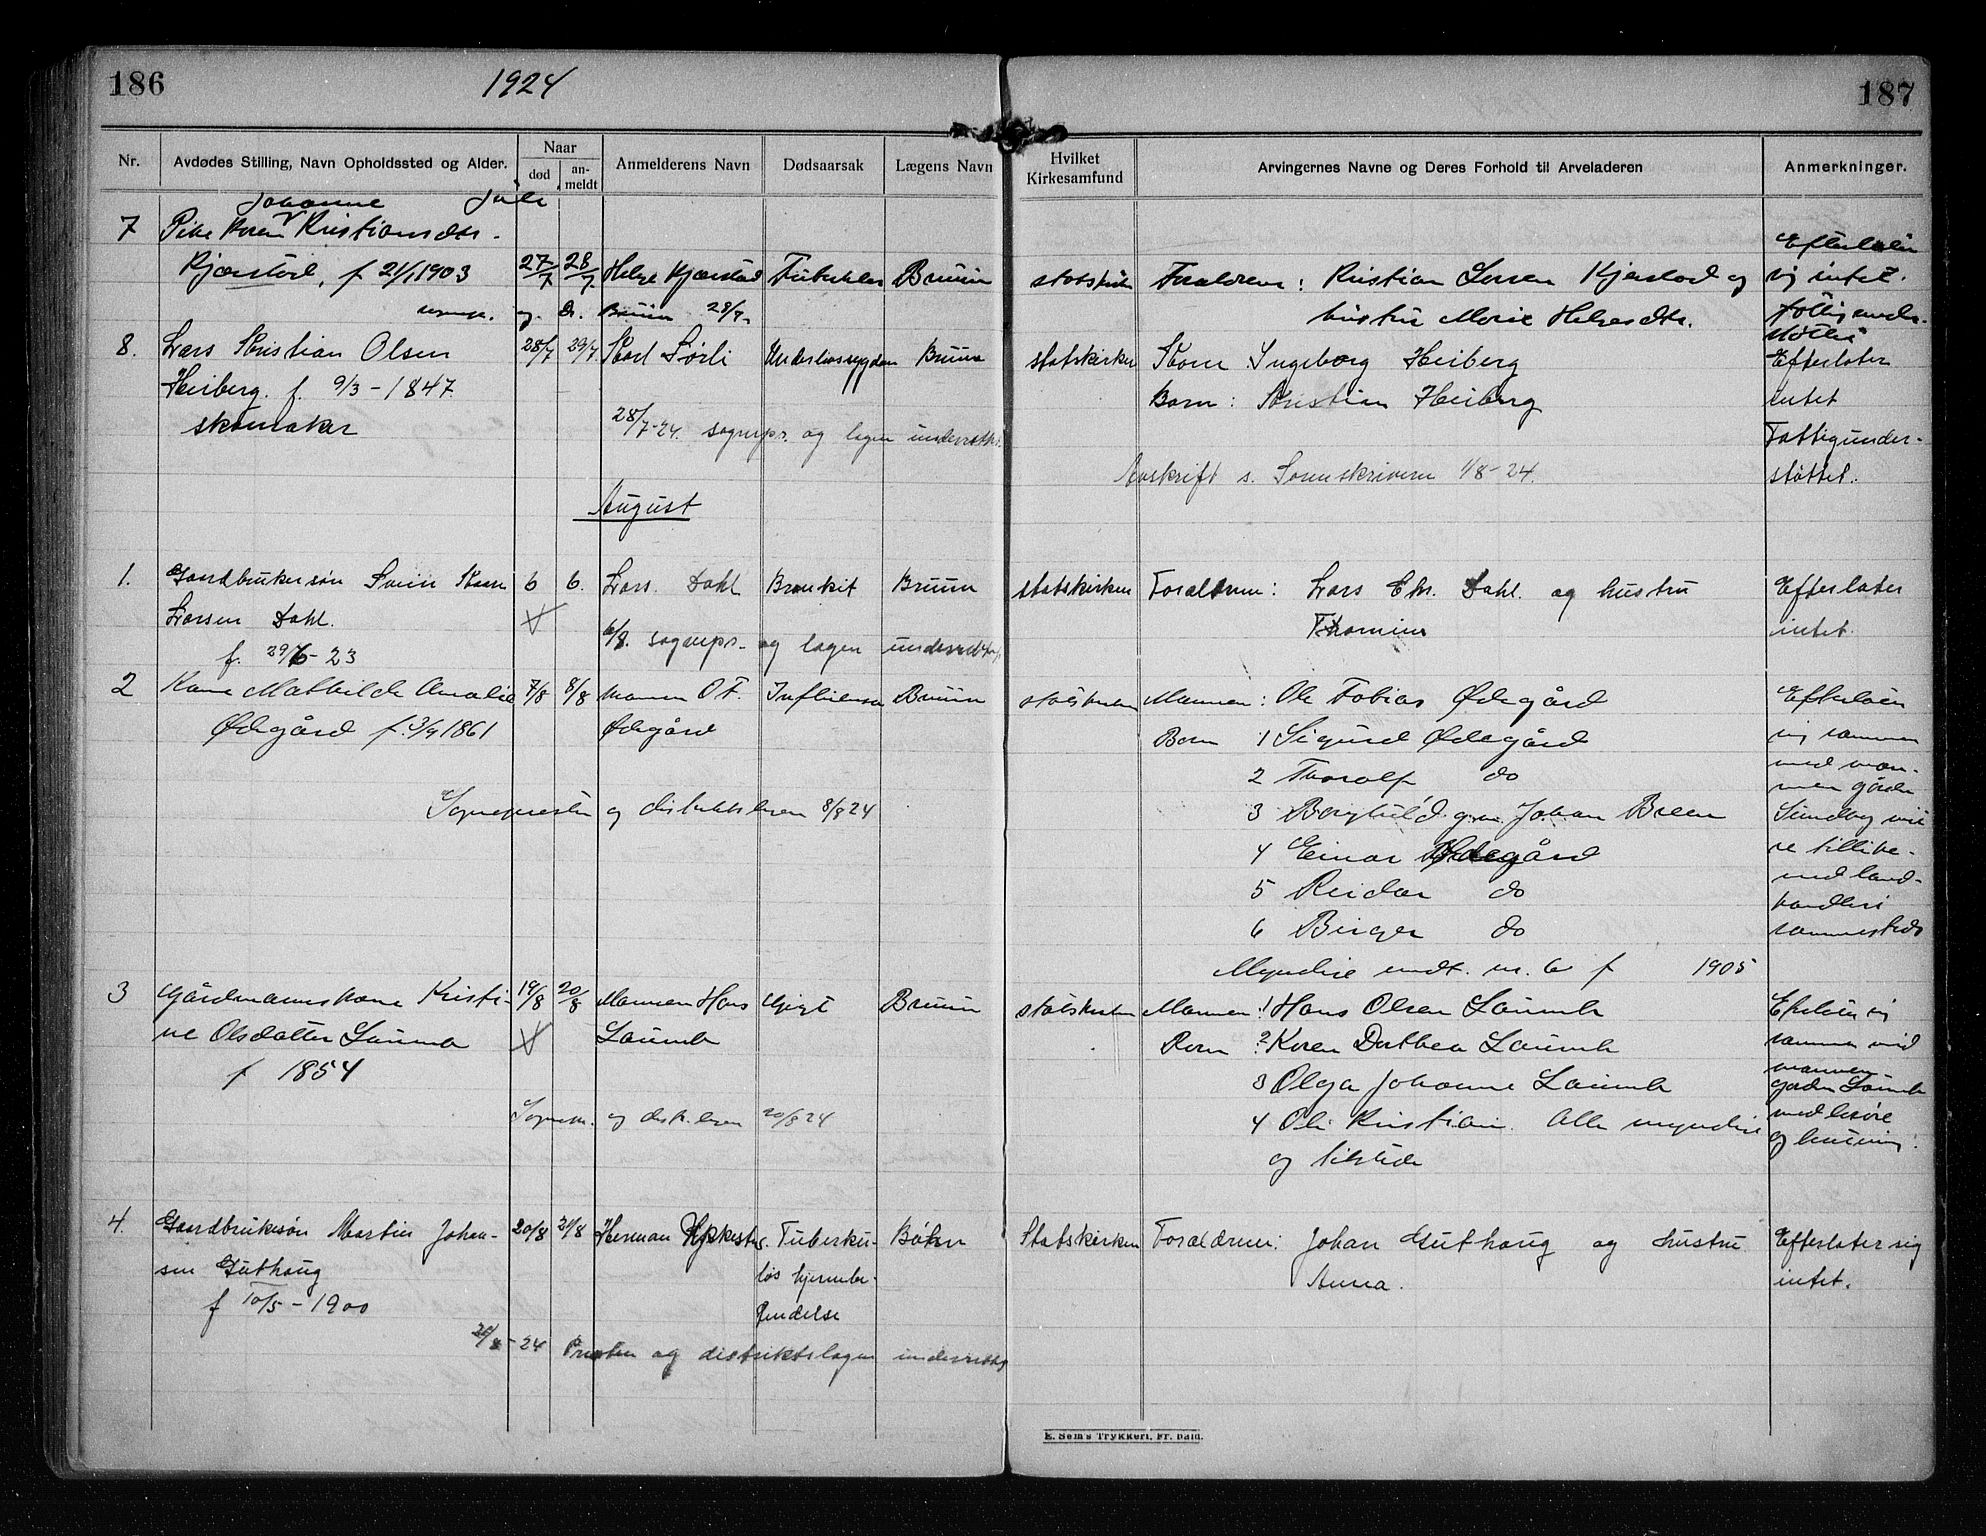 186
1924
187
Nr.
Avdødes Stilling, Navn Opholdssted og Alder.
Naar
død
an-
meldt
Anmelderens Navn
Dødsaarsak
Lægens Navn
Hvilket
Kirkesamfund
Arvingernes Navne og Deres Forhold til Arveladeren
Anmerkninger.
Johanne Juli
7 Pike Karen Kristiansdtr.
Kjærstad, f 21/1 1903 27/7 28/7 Helge Kjærstad Tuberkler Bruun statskirken Forældrene: Kristian Larsen Kjærstad og
hustru Marie Helgesdtr.
Efterlater
sig intet.
fattigunder-
støttet
sognepr. og Dr. Bruun 28/7
8. Lars Kristian Olsen 28/7 29/7 Karl Sørli Underlivssygdom Bruun statskirken Kone Ingeborg Heiberg
Heiberg. f. 9/3-1847. Barn: Kristian Heiberg
skomaker
Efterlater
intet
Fattigunder-
støttet.
28/7-24. sognepr. og lægen underrettet.
Avskrift s. Sorenskriveren 1/8-24.
August
1. Gaardbrukersøn Svein Kaare 6 6. Lars. Dahl Bronkit Bruun statskirken Forældrene: Lars Chr. Dahl. og hustru
Larsen Dahl. Thomine
f. 29/6-23
Efterlater
intet.
6/8. sognepr. og lægen underrettet
2 Kone Mathilde Amalie 7/8 8/8 Mannen O T. Influensa Bruun statskirken Mannen: Ole Tobias Ødegård
Ødegård f. 3/9 1861 Ødegård
Barn 1 Sigurd Ødegård
2 Thoralf do
3 Borghild g.m. Johan Breen
4 Einar Ødegård
5 Reidar do
6 Birger do
Myndige undt. nr. 6 f 1905
Efterlater
sig sammen
med man-
nen gården
Sundby
med land-
handleri
sammesteds
Sognepresten og distriktslægen 8/8 24
3 Gårdmannskone Kristi- 19/8 20/8 Mannen Hans Gigt Bruun statskirken Mannen 1 Hans Olsen Laumb
ne Olsdatter Laumb Laumb
f 1854
Barn 2 Karen Dorthea Laumb
3 Olga Johanne Laumb
4 Ole Kristian. Alle myndige
og tilstede
Efterlater sig
sammen med
mannen
gården Laumb
med løsøre
og buskap.
Sognepr. og distr.lægen 20/8 24
4. Gaardbrukersøn Martin Johan- 20/8 21/8 Herman Tuberku- Bøhn Statskirken Forældrene: Johan Guthaug og hustru
sen Guthaug løs hjernebe- Anna.
f 10/5-1900 tændelse
Efterlater sig
intet.
21/8-24 Presten og distriktslægen underrettet
E. Sem's Trykkeri, Fr.hald.